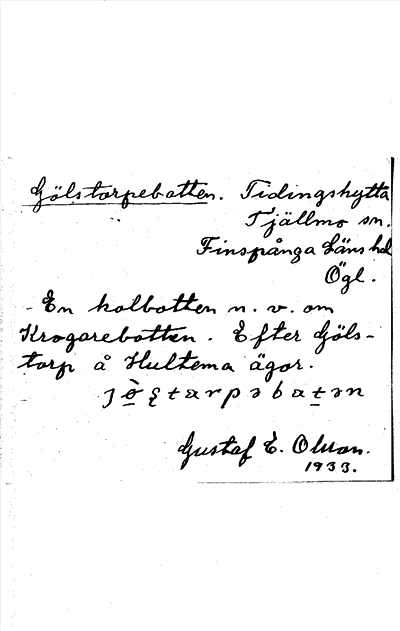 Gölstorpebotten. Tidingshytta
Tjällmo sn.
Finspånga Läns hd
Ögl.
En kolbotten n. v. om
Krogarebotten. Efter Göls-
torp å Hultema ägor.
Gustaf E. Olsson.
1933.